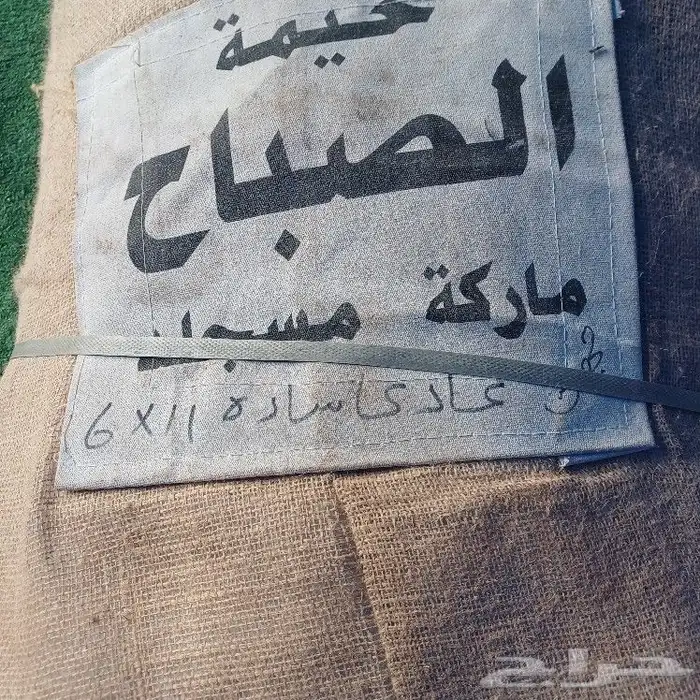 خيمة
الصباح
ماركة مسجلة
عادي ساده 11×6
حراج